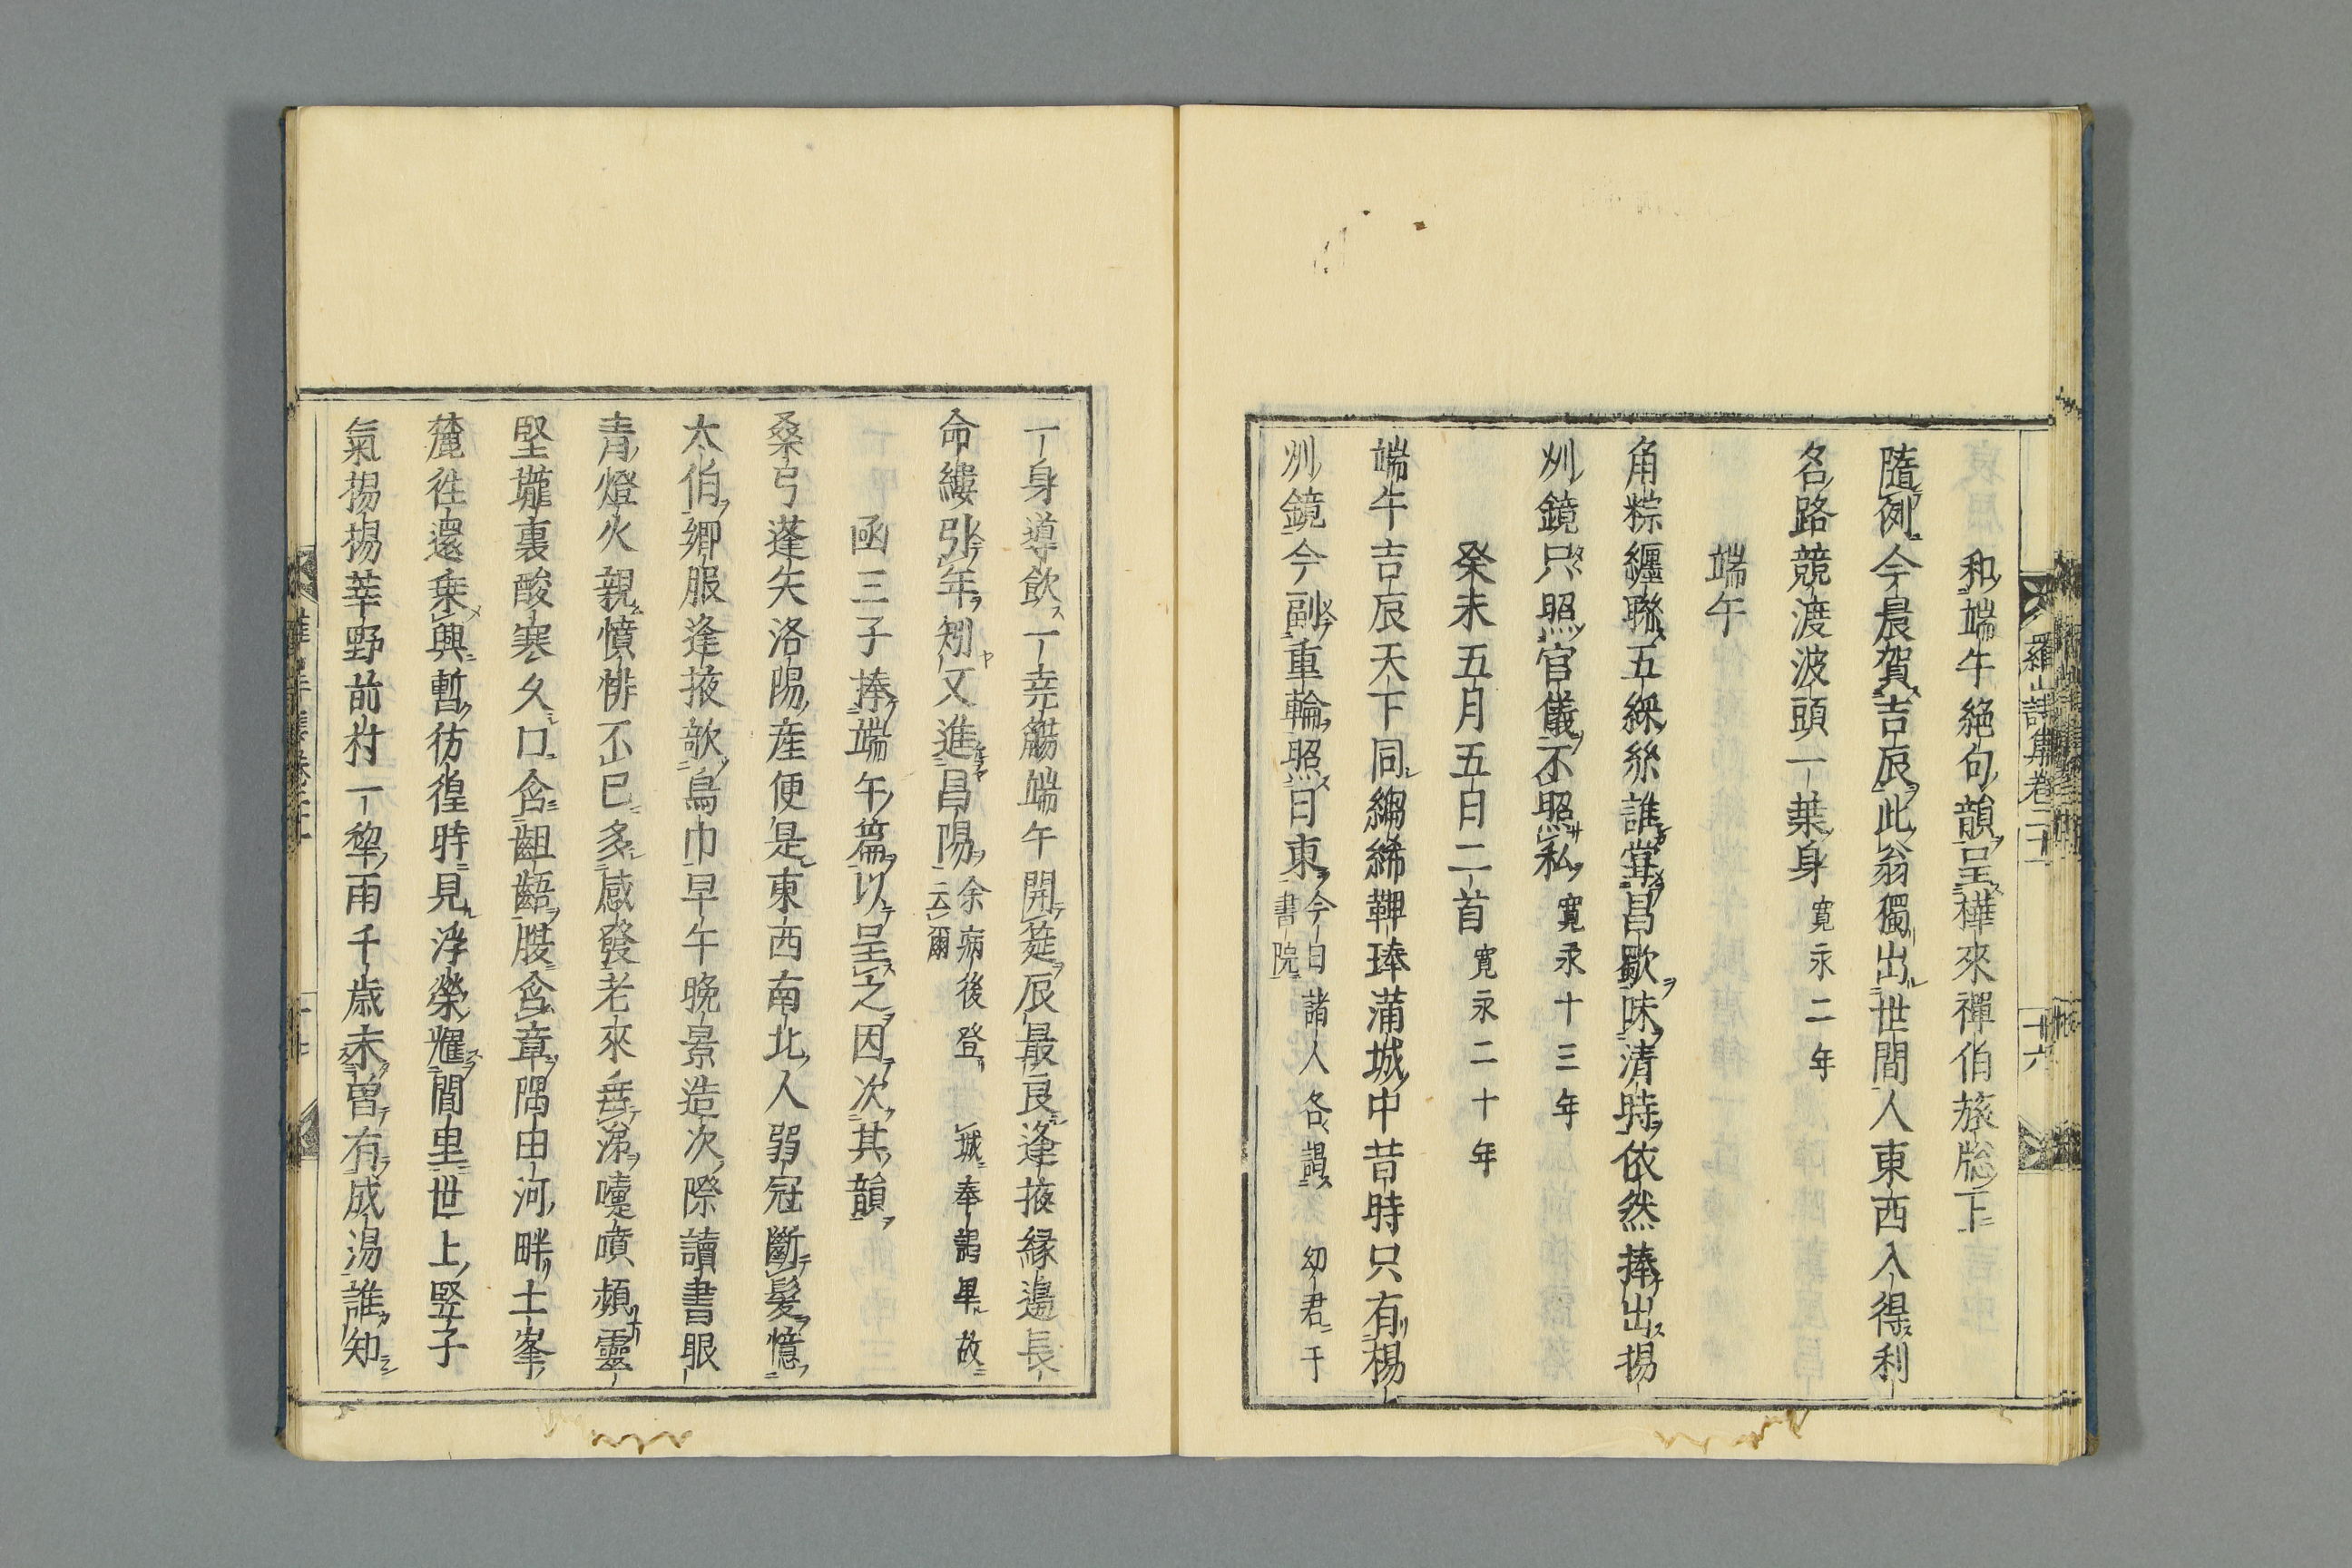 和端午絶句韻呈樺來禪伯旅牕下
隨例今晨賀吉辰此翁獨出世間人東西入得利
名路競渡波頭一葉身寬永二年
端午
角粽纏聯五綵絲誰嘗昌歜味清時依然捧出揚
州鏡只照官儀不照私寬永十三年
癸未五月五日二首寬永二十年
端午吉辰天下同綈鞞琫蒲城中昔時只有楊
州鏡今副重輪照日東今日諸人各謁幼君于
書院
一身導飲一堯觴端午開筵辰最良逢掖縁邊長
命縷引年矧又進昌陽余病後登城奉謁畢故
云爾
函三子捧端午篇以呈之因次其韻
桑弓蓬矢洛陽産便是東西南北人弱冠斷髮憶
太伯鄉服逢掖歆烏巾早午晚景造次際讀書眼
青燈火親憤悱不已多感發老來垂涕嚏噴頻靈
堅壠裏酸寒久口含齟齬腹含章隅由河畔土峯
麓往還乗興暫彷徨時見浮榮耀閭里世上竪子
氣揚揚莘野前村一犂雨千歳未曽有成湯誰知
羅山詩集卷二十一
十六